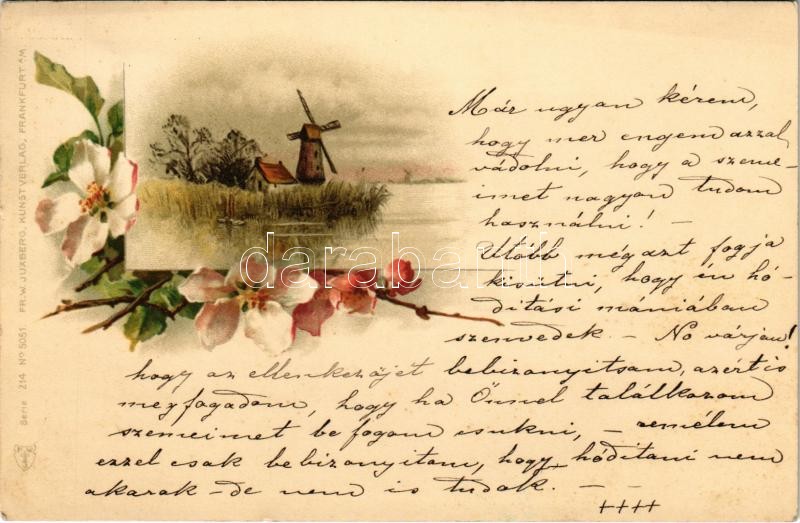 Már ugyan kérem,
hogy mer engem azzal
vádolni, hogy a szeme-
imet nagyon tudom
használni! –
Utóbb még azt fogja
kisütni, hogy én hó-
dítási mániában
szenvedek. – No várjon!
hogy az ellenkezőjét bebizonyítsam, azért is
megfogadom, hogy ha Önnel találkozom
szemeimet be fogom csukni, – remélem
ezzel csak bebizonyítom, hogy hódítani nem
akarok – de nem is tudok. –
++++
Serie 214 No 5051. FR. W. JUXBERG, KUNSTVERLAG, FRANKFURT A/M.
darabanth